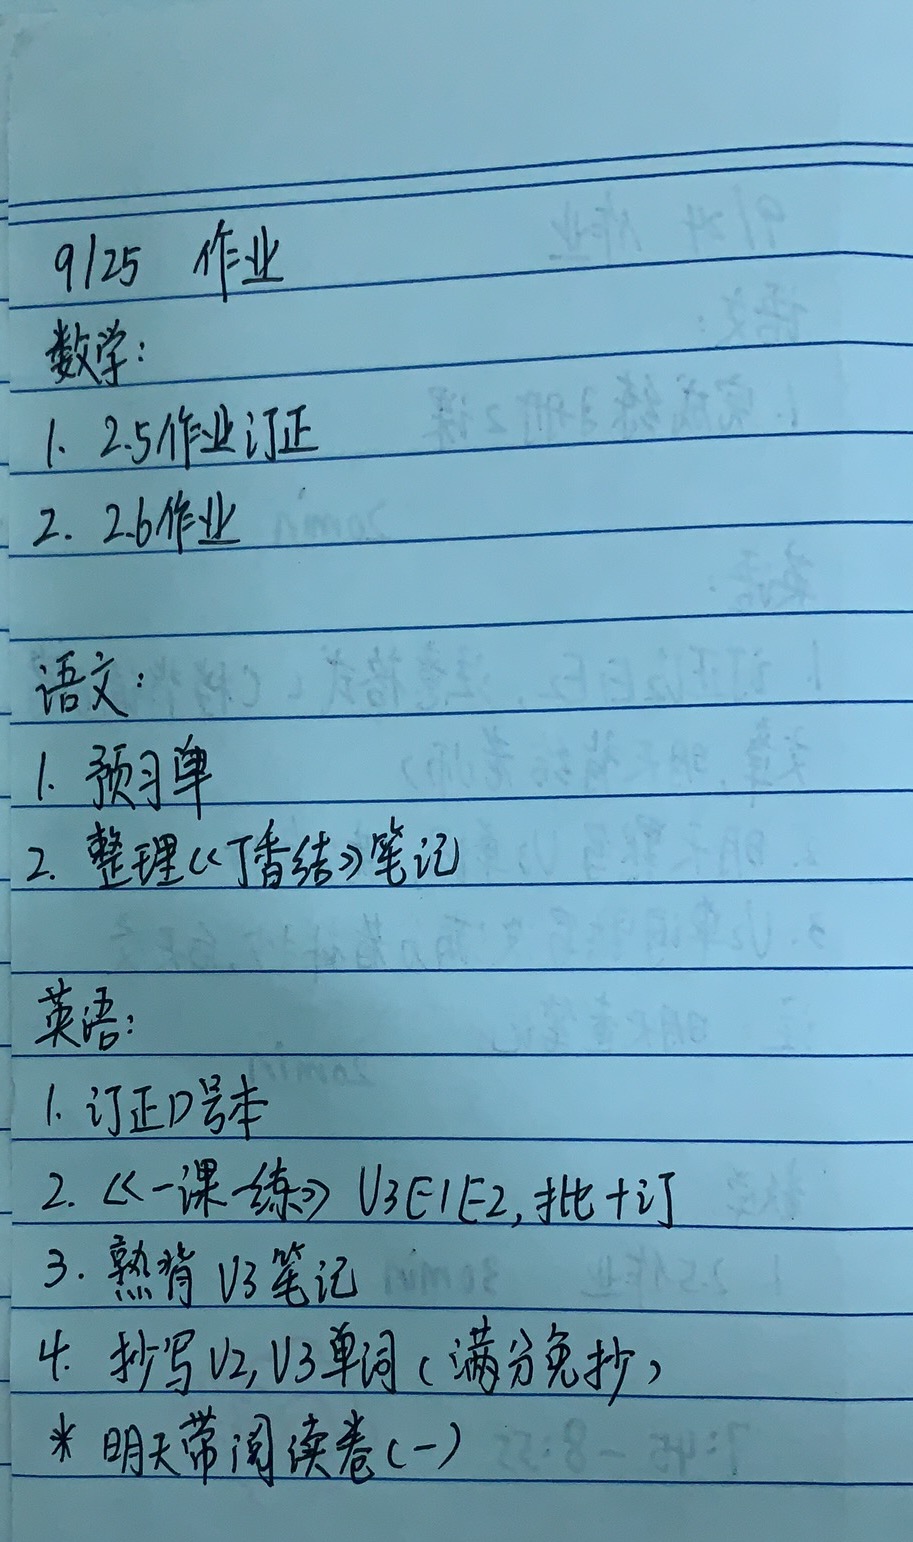 9/25 作业
数学:
1. 2.5作业订正
2. 2.6作业
语文:
1. 预习单
2. 整理《丁香结》笔记
英语:
1. 订正D号本
2. 《一课一练》U3E1E2,批+订
3. 熟背U3笔记
4. 抄写U2,U3单词(满分免抄)
* 明天带阅读卷(一)